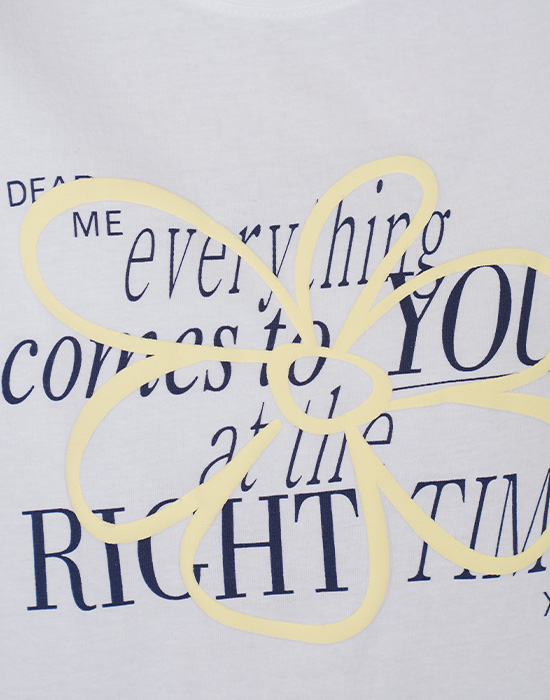 DEAR
ME everything
comes to YOU
at the
RIGHT TIM
X